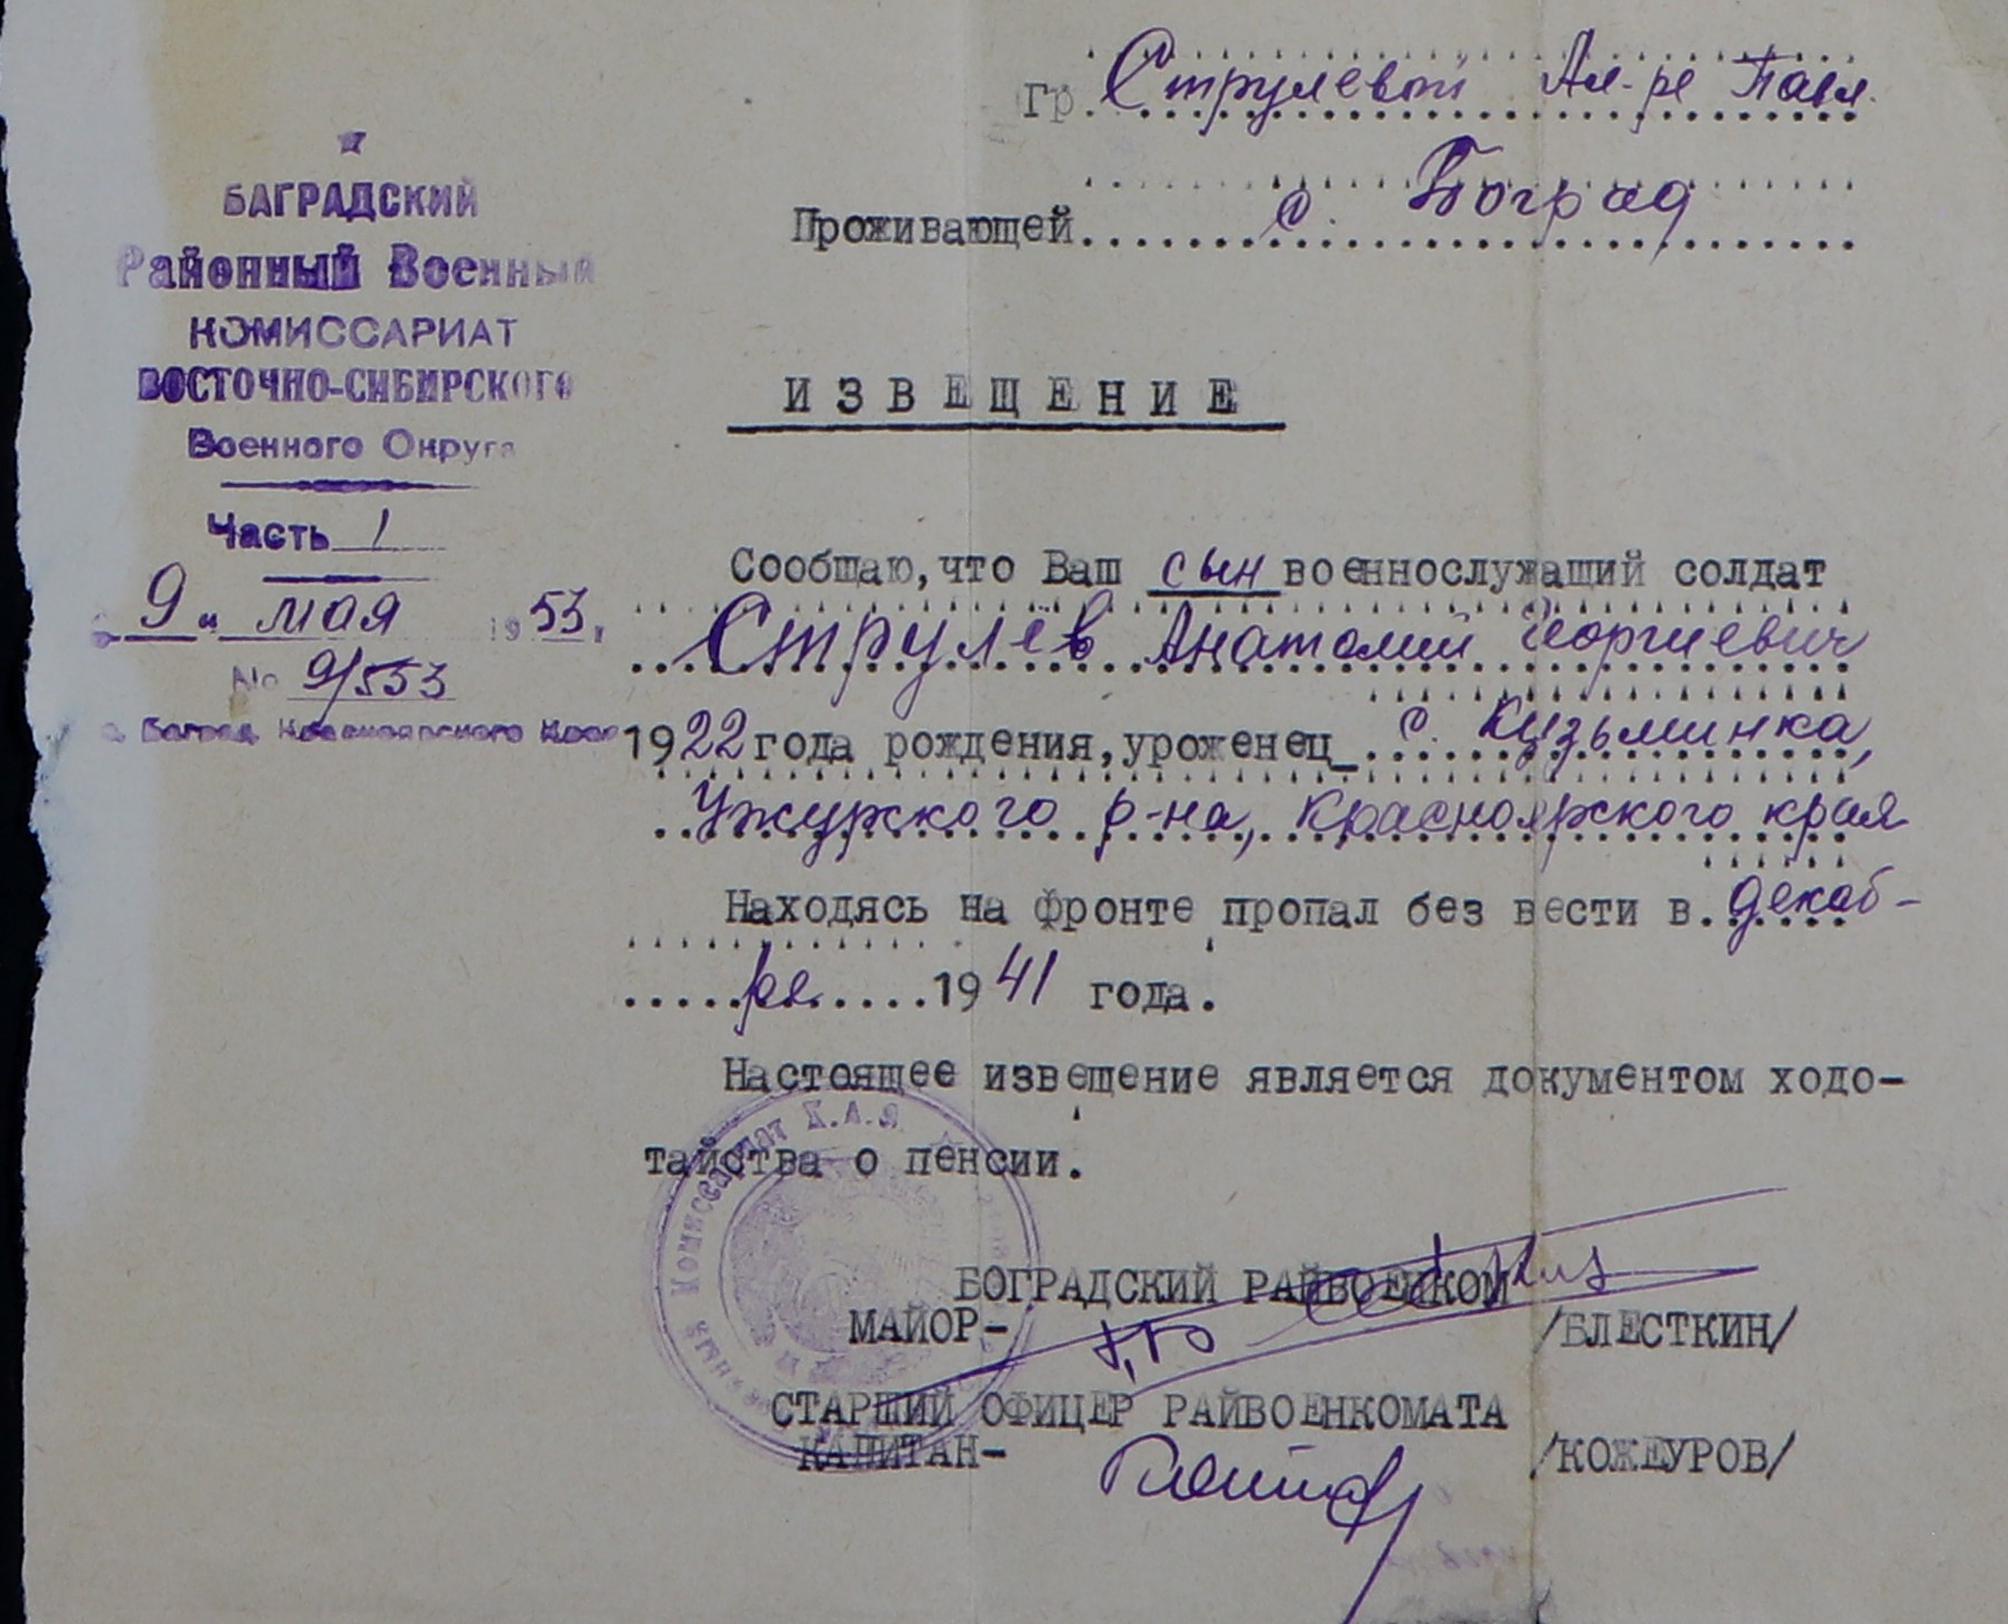 Гр. Струлевой Ал-ре Павл.
Проживающей с. Боград
БАГРАДСКИЙ
Районный Военный
КОМИССАРИАТ
ВОСТОЧНО-СИБИРСКОГО
Военного Округа
Часть 1
9 " мая 1953 г.
№ 9/553
с. Баград Красноярского Края
ИЗВЕЩЕНИЕ
Сообщаю, что Ваш сын военнослужащий солдат
Струлёв Анатолий Георгиевич
1922 года рождения, уроженец с. Кузьминка,
Ужурского р-на, Красноярского края
Находясь на фронте пропал без вести в декаб-
ре 1941 года.
Настоящее извещение является документом ходо-
тайства о пенсии.
Комиссариат Х.А.О
БОГРАДСКИЙ РАЙВОЕНКОМ
МАЙОР- /БЛЕСТКИН/
СТАРШИЙ ОФИЦЕР РАЙВОЕНКОМАТА
КАПИТАН- /КОЖЕУРОВ/